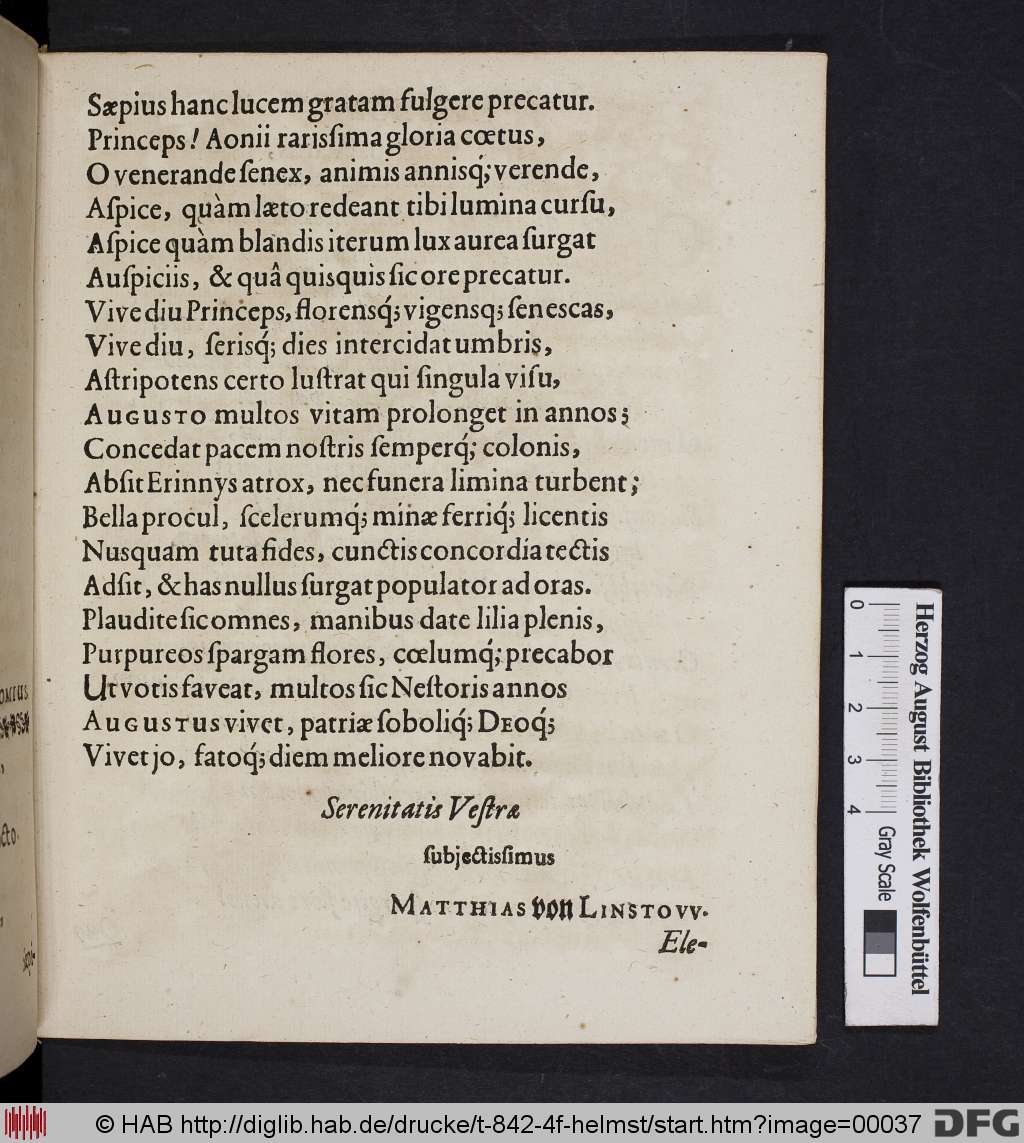 Sæpius hanc lucem gratam fulgere precatur.
Princeps! Aonii rarisſima gloria cœtus,
O venerande ſenex, animis annisq́; verende,
Aſpice, quàm læto redeant tibi lumina curſu,
Aſpice quàm blandis iterum lux aurea ſurgat
Auſpiciis, & quâ quisquis ſic ore precatur.
Vive diu Princeps, florensq́; vigensq; ſenescas,
Vive diu, ſerisq́; dies intercidat umbris,
Aſtripotens certo luſtrat qui ſingula viſu,
AUGUSTO multos vitam prolonget in annos;
Concedat pacem noſtris ſemperq́; colonis,
Abſit Erinnys atrox, nec funera limina turbent;
Bella procul, ſcelerumq́; minæ ferriq́; licentis
Nusquam tuta fides, cunctis concordia tectis
Adſit, & has nullus ſurgat populator ad oras.
Plaudite ſic omnes, manibus date lilia plenis,
Purpureos ſpargam flores, cœlumq́; precabor
Ut votis faveat, multos ſic Neſtoris annos
AUGUSTUS vivet, patriæ ſoboliq́; DEOq́;
Vivet jo, fatoq́; diem meliore novabit.
Serenitatis Veſtræ
ſubjectisſimus
MATTHIAS von LINSTOVV.
Ele-
OMIUS
cto.
Herzog August Bibliothek Wolfenbüttel
0 1 2 3 4
Gray Scale
© HAB http://diglib.hab.de/drucke/t-842-4f-helmst/start.htm?image=00037
DFG